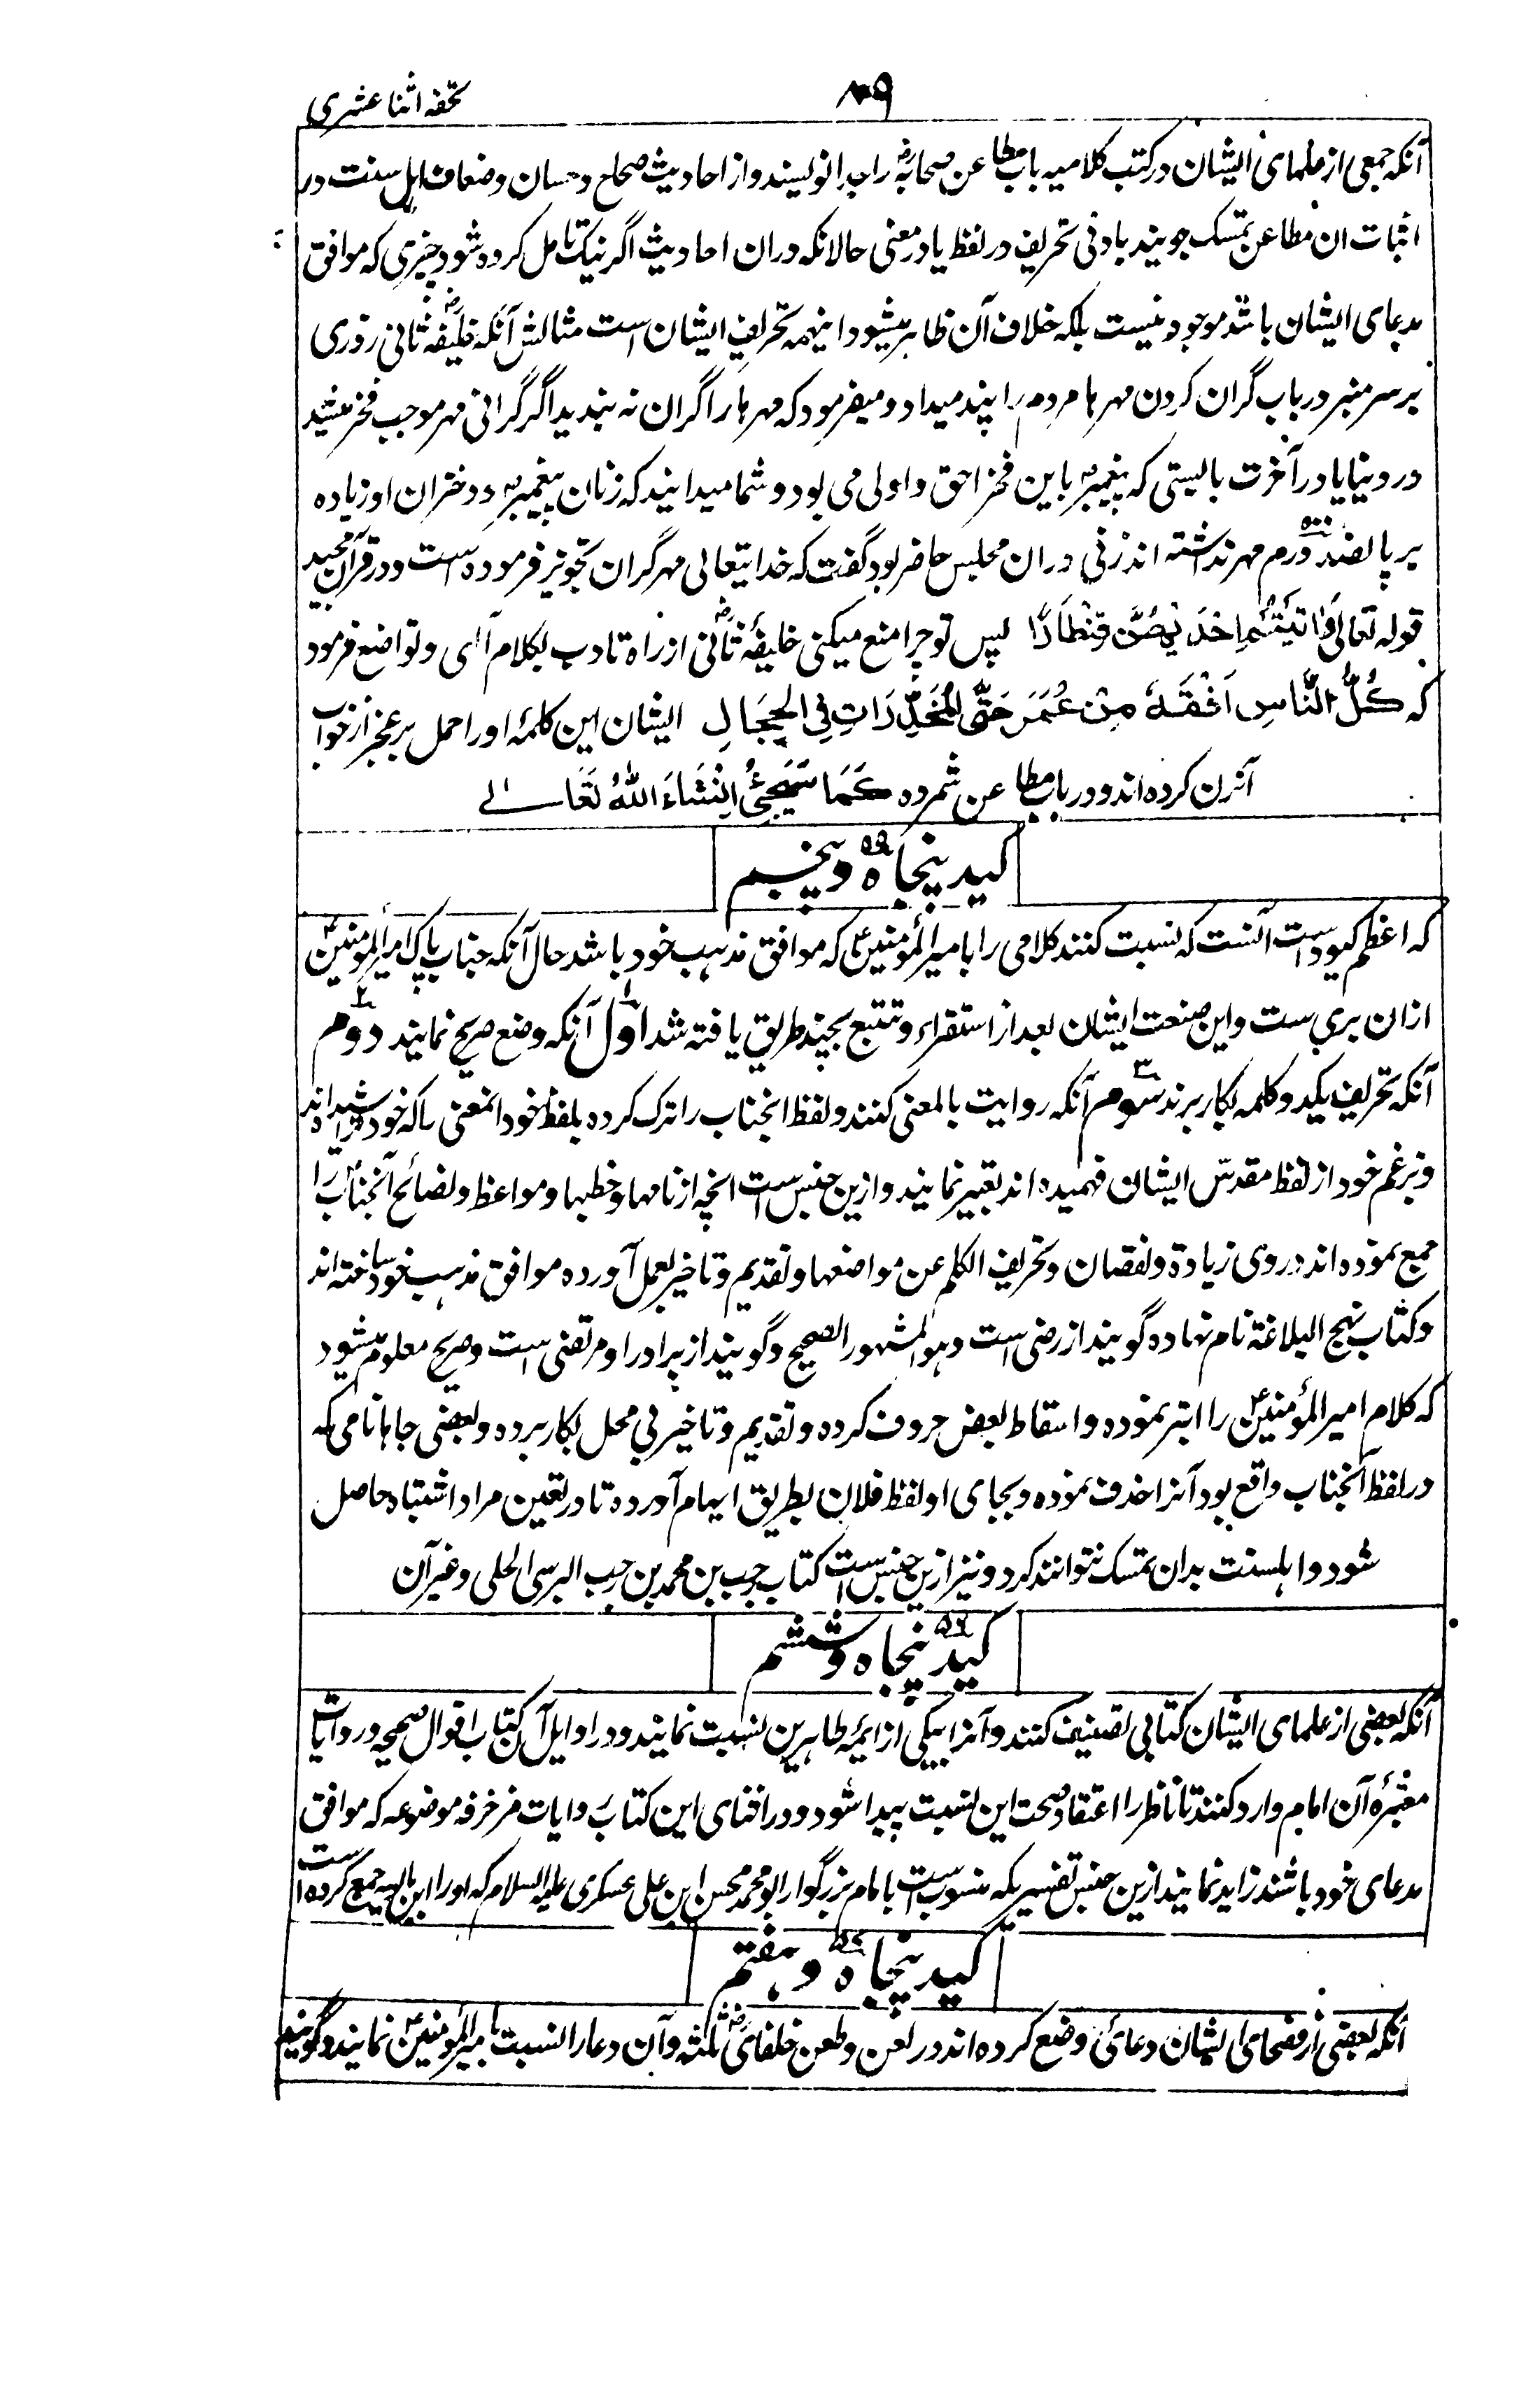 تحفه اثنا عشری
آنکه جمعی از علمای ایشان در کتب کلامیه باب مطاعن صحابه رض را جدا نویسند و از احادیث صحاح و حسان و ضعاف اهل سنت در
اثبات ان مطاعن تمسک جویند بادنی تحریف در لفظ یا در معنی حالانکه دران احادیث اگر نیک تامل کرده شود چیزی که موافق
مدعای ایشان باشد موجود نیست بلکه خلاف آن ظاهر میشود اینهمه تحریف ایشان است مثالش آنکه خلیفه ثانی رض روزی
بر سر منبر در باب گران کردن مهرها مردم را پند میداد و میفرمود که مهرها را گران نه بندید اگر گرانی مهر موجب فخر میشد
در دنیا یا در آخرت بایستی که پیغمبر ص باین فخر احق و اولی می بود و شما میدانید که زنان پیغمبر ص و دختران او زیاده
بر پانصد ۵۰۰ درم مهر نداشته اند زنی دران مجلس حاضر بود گفت که خدایتعالی مهر گران تجویز فرموده است و در قرآن مجید
قوله تعالی وَاٰتَيْتُمْ اِحْدٰىهُنَّ قِنْطَارًا پس تو چرا منع میکنی خلیفهٔ ثانی رض از راه تادب بکلام الٰهی و تواضع فرمود
که كُلُّ النَّاسِ اَفْقَهُ مِنْ عُمَرَ حَتَّى الْمُخَدَّرَاتِ فِي الْحِجَالِ ایشان این کلمهٔ او را حمل بر عجز از جواب
آنزن کرده اند و در باب مطاعن شمرده كَمَا سَيَجِيْءُ اِنْشَاءَ اللّٰهُ تَعَالٰی
کید پنجاه و پنجم ۵۵
که اعظم کیود است آنست که نسبت کنند کلامی را بامیر المؤمنین ع که موافق مذهب خود باشد حال آنکه جناب پاک امیر المؤمنین ع
ازان بری ست و این صنعت ایشان بعد از استقراء و تتبع بچند طریق یافته شد اول ۱ آنکه وضع صریح نمایند دوم ۲
آنکه تحریف یکد و کلمه بکار برند سوم ۳ آنکه روایت بالمعنی کنند و لفظ انجناب را ترک کرده بلفظ خود انمعنی را که خود تراشیده اند
و بزعم خود از لفظ مقدس ایشان فهمیده اند تعبیر نمایند و ازین جنس است انچه از نامها و خطبها و مواعظ و نصائح آنجناب را
جمع نموده اند در وی زیادة و نقصان و تحریف الکلم عن مواضعها و تقدیم و تاخیر بعمل آورده موافق مذهب خود ساخته اند
و کتاب نهج البلاغة نام نهاده گویند از رضی است وهو المشهور الصحیح و گویند از برادر او مرتضی است و صریح معلوم میشود
که کلام امیر المؤمنین ع را ابتر نموده و اسقاط بعض حروف کرده و تقدیم و تاخیر بی محل بکار برده و بعضی جاها نامی که
در لفظ آنجناب واقع بود آنرا حذف نموده و بجای او لفظ فلان بطریق ابهام آورده تا در تعین مراد اشتباه حاصل
شود و اهلسنت بدان تمسک نتوانند کرد و نیز ازین جنس است کتاب رجب بن محمد بن رجب البرسی الحلی و غیر آن
کید پنجاه و ششم ۵۶
آنکه بعضی از علمای ایشان کتابی تصنیف کنند و آنرا بیکی از ائمه طاهرین نسبت نمایند و در اوایل آن کتاب اقوال صحیحه و روایات
معتبرهٔ آن امام وارد کنند تا ناظر را اعتقاد صحت این نسبت پیدا شود و در اثنای این کتاب روایات مزخرفه موضوعه که موافق
مدعای خود باشند زاید نمایند ازین جنس تفسیریکه منسوب است بامام بزرگوار ابو محمد حسن ابن علی عسکری علیه السلام که او را ابن بابویه جمع کرده است
کید پنجاه و هفتم ۵۷
آنکه بعضی از فصحای ایشان دعائی وضع کرده اند در لعن و طعن خلفای ثلثه رض و آن دعا را نسبت بامیر المؤمنین ع نمایند و گویند